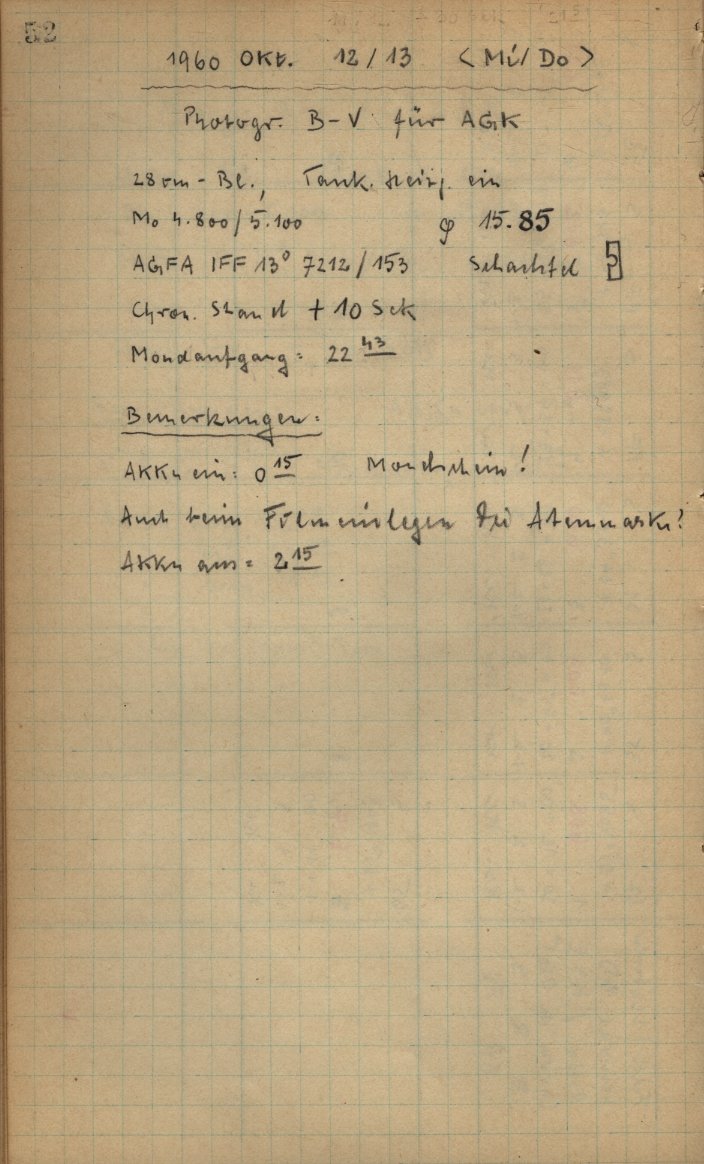 52
1960 OKT. 12/13 <Mi/Do>
Photogr. B-V für AGK
28 cm-Bl., Tauk. Heizg. ein
Mo 4.800/5.100 φ 15.85
AGFA IFF 13° 7212/153 Schachtel 5
Chron. Stand + 10 Sek
Mondaufgang: 22 43
Bemerkungen:
Akku ein: 0 15 Mondschein!
Auch beim Filmeinlegen die Atemmaske!
Akku aus: 2 15